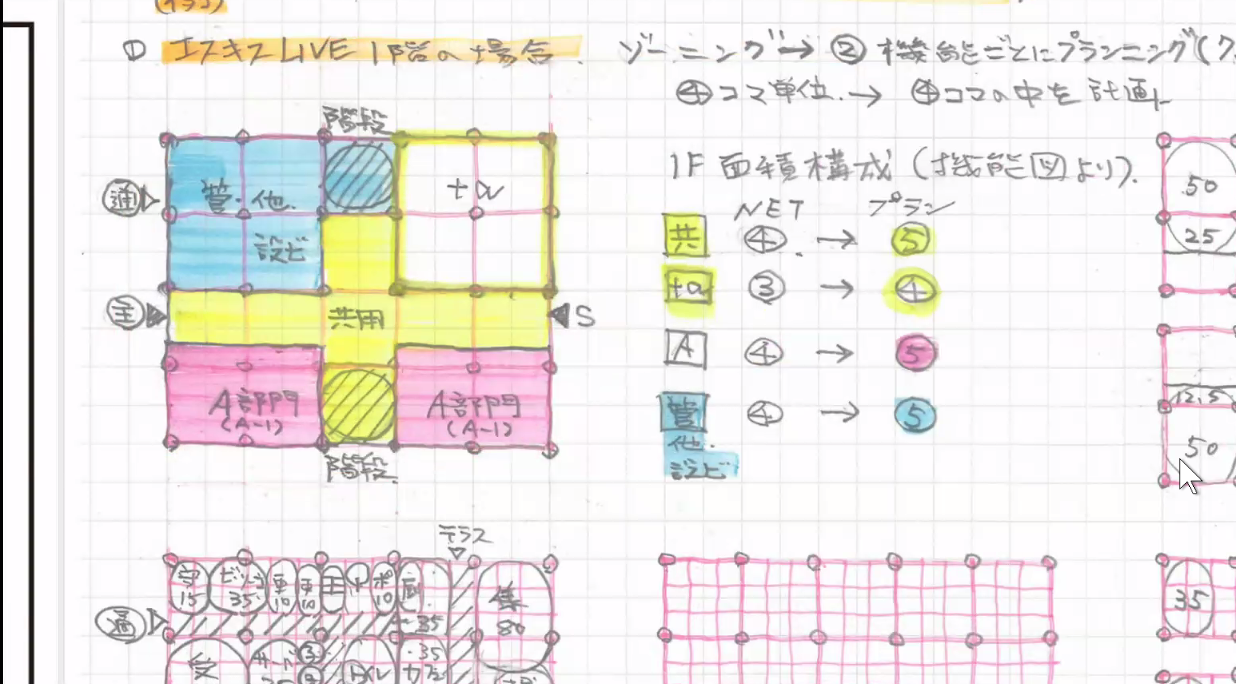 ① エスキスLIVE 1階の場合. ゾーニング → ② 機能ごとにプランニング(7.
④コマ単位. → ④コマの中を計画
階段
通 管・他. +α
設ビ
主 共用 S
A部門 (A-1) A部門 (A-1)
階段
1F 面積構成 (機能図より).
NET プラン
共 ④ → ⑤
+α ③ → ④
A ④ → ⑤
管 ④ → ⑤
他.
設ビ
50
25
12.5
50
テラス
通 守 15 35 10 10 ポ 10 35 集 80
35
35